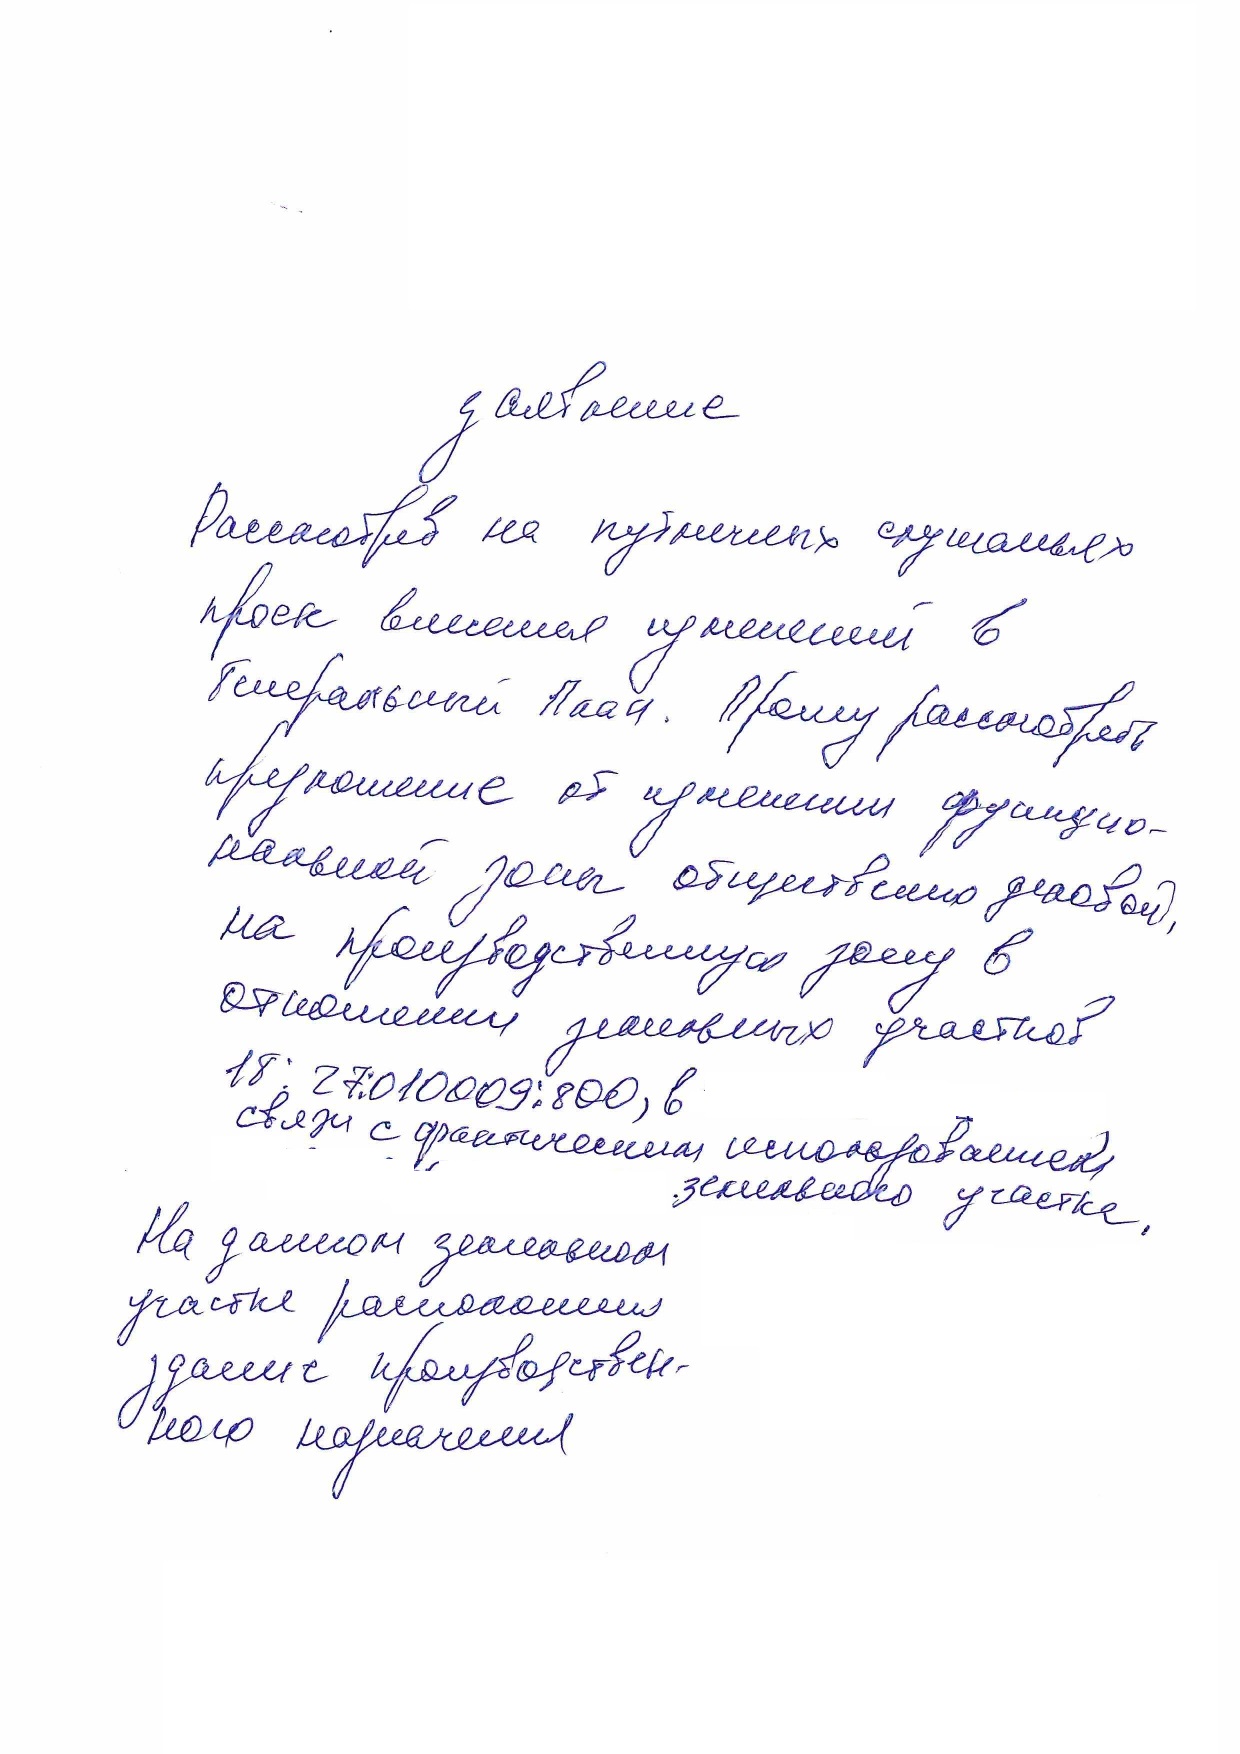 заявление
Рассмотрев на публичных слушаньях
проек внисения изменений в
Генеральный План. Прошу рассмотреть
предложение от изменении функцио-
нальной зоны обществено деловой,
на производственную зону в
отношении земельных участков
18:27:010009:800, в
связи с фактическим использованием
земельного участка.
На данном земельном
участке расположения
здание производствен-
ного назначения